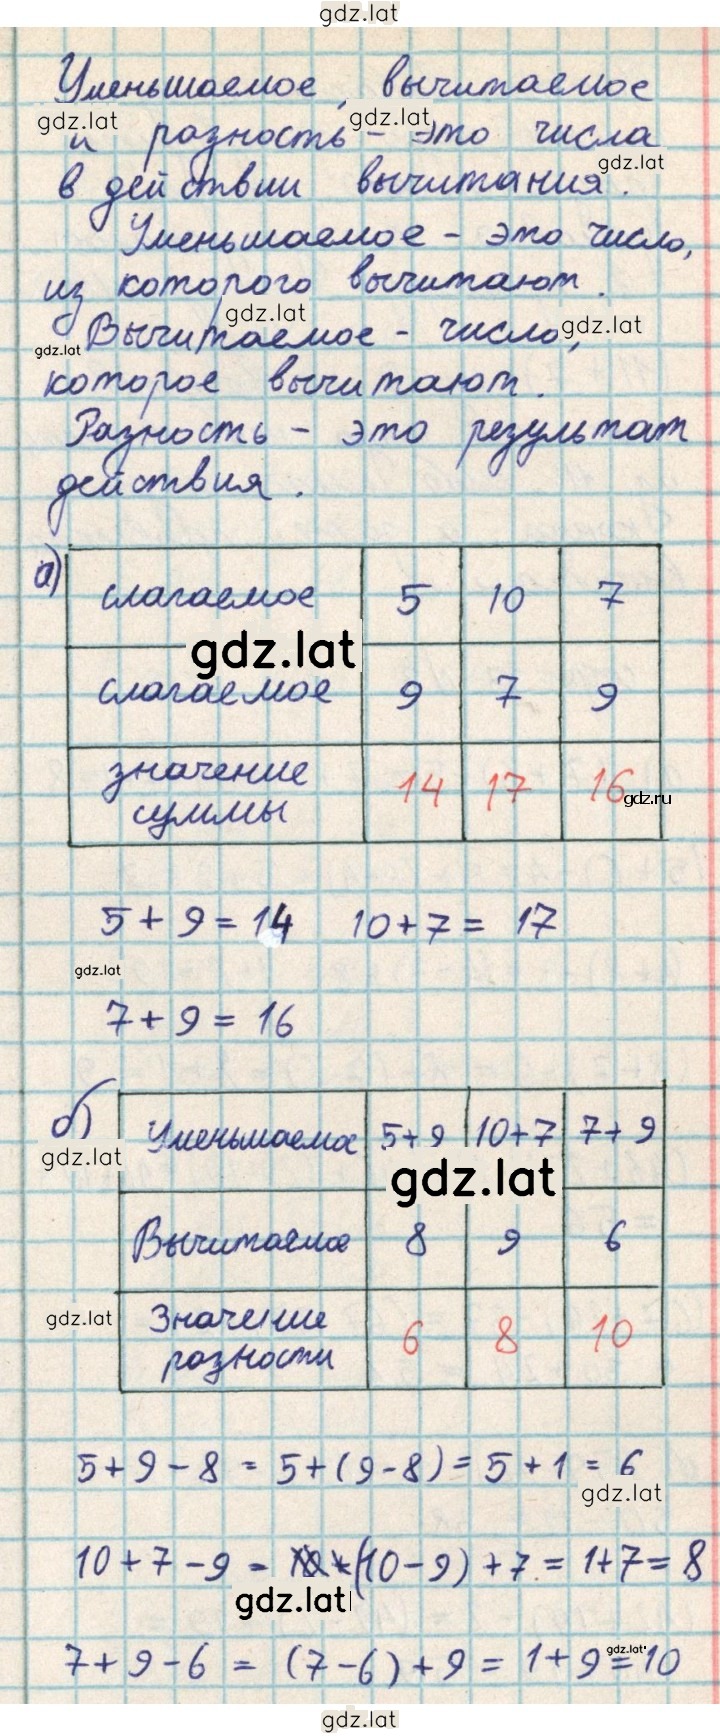 gdz.lat
Уменьшаемое, вычитаемое
gdz.lat gdz.lat
и разность - это числа
gdz.lat
в действии вычитания.
Уменьшаемое - это число,
из которого вычитают.
gdz.lat gdz.lat
gdz.lat Вычитаемое - число,
которое вычитают.
Разность - это результат
действия.
а)
слагаемое 5 10 7
gdz.lat
слагаемое 9 7 9
значение
суммы 14 17 16
gdz.ru
5 + 9 = 14 10 + 7 = 17
gdz.lat
7 + 9 = 16
б)
Уменьшаемое 5+9 10+7 7+9
gdz.lat gdz.lat
Вычитаемое 8 9 6
gdz.lat
Значение
разности 6 8 10
5 + 9 - 8 = 5 + (9 - 8) = 5 + 1 = 6
gdz.lat
10 + 7 - 9 = (10 - 9) + 7 = 1 + 7 = 8
gdz.lat
gdz.lat
7 + 9 - 6 = (7 - 6) + 9 = 1 + 9 = 10
gdz.lat